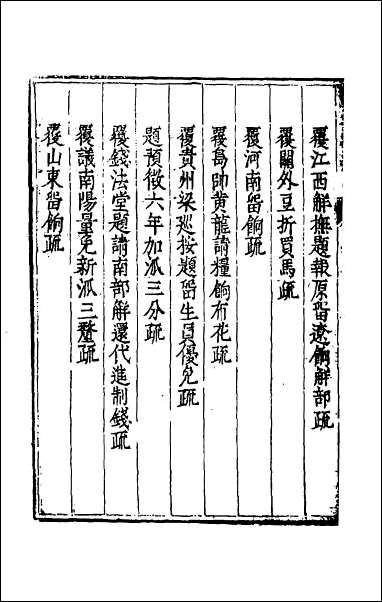 覆江西解撫題報原留遼餉解部疏
覆關外豆折買馬疏
覆河南留餉疏
覆島帥黄龍請糧餉布花疏
覆貴州梁廵按題留生員優免疏
題預徴六年加派三分疏
覆錢法堂題請南部解還代進制錢疏
覆議南陽量免新派三釐疏
覆山東留餉疏